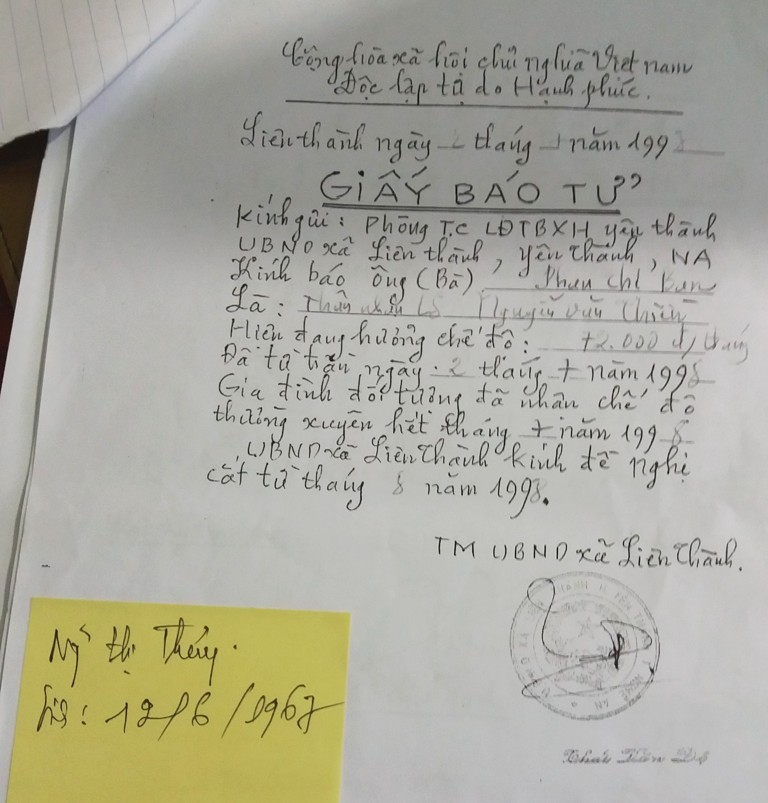 Cộng hòa xã hội chủ nghĩa Việt nam
Độc lập tự do Hạnh phúc.
Liên thành ngày 2 tháng 7 năm 1998
GIẤY BÁO TỬ
Kính gửi: Phòng T.C LĐTBXH yên thành
UBND xã Liên thành, Yên Thành, NA
Kính báo ông (Bà) Phan chí
Là: Thân nhân LS Nguyễn văn
Hiện đang hưởng chế độ: 72.000 đ/tháng
Đã từ trần ngày: 2 tháng 7 năm 1998
Gia đình đối tượng đã nhận chế độ
thường xuyên hết tháng 7 năm 1998
UBND xã Liên Thành kính đề nghị
cắt từ tháng 8 năm 1998.
TM UBND xã Liên Thành.
Thị Thủy.
12/6/1967